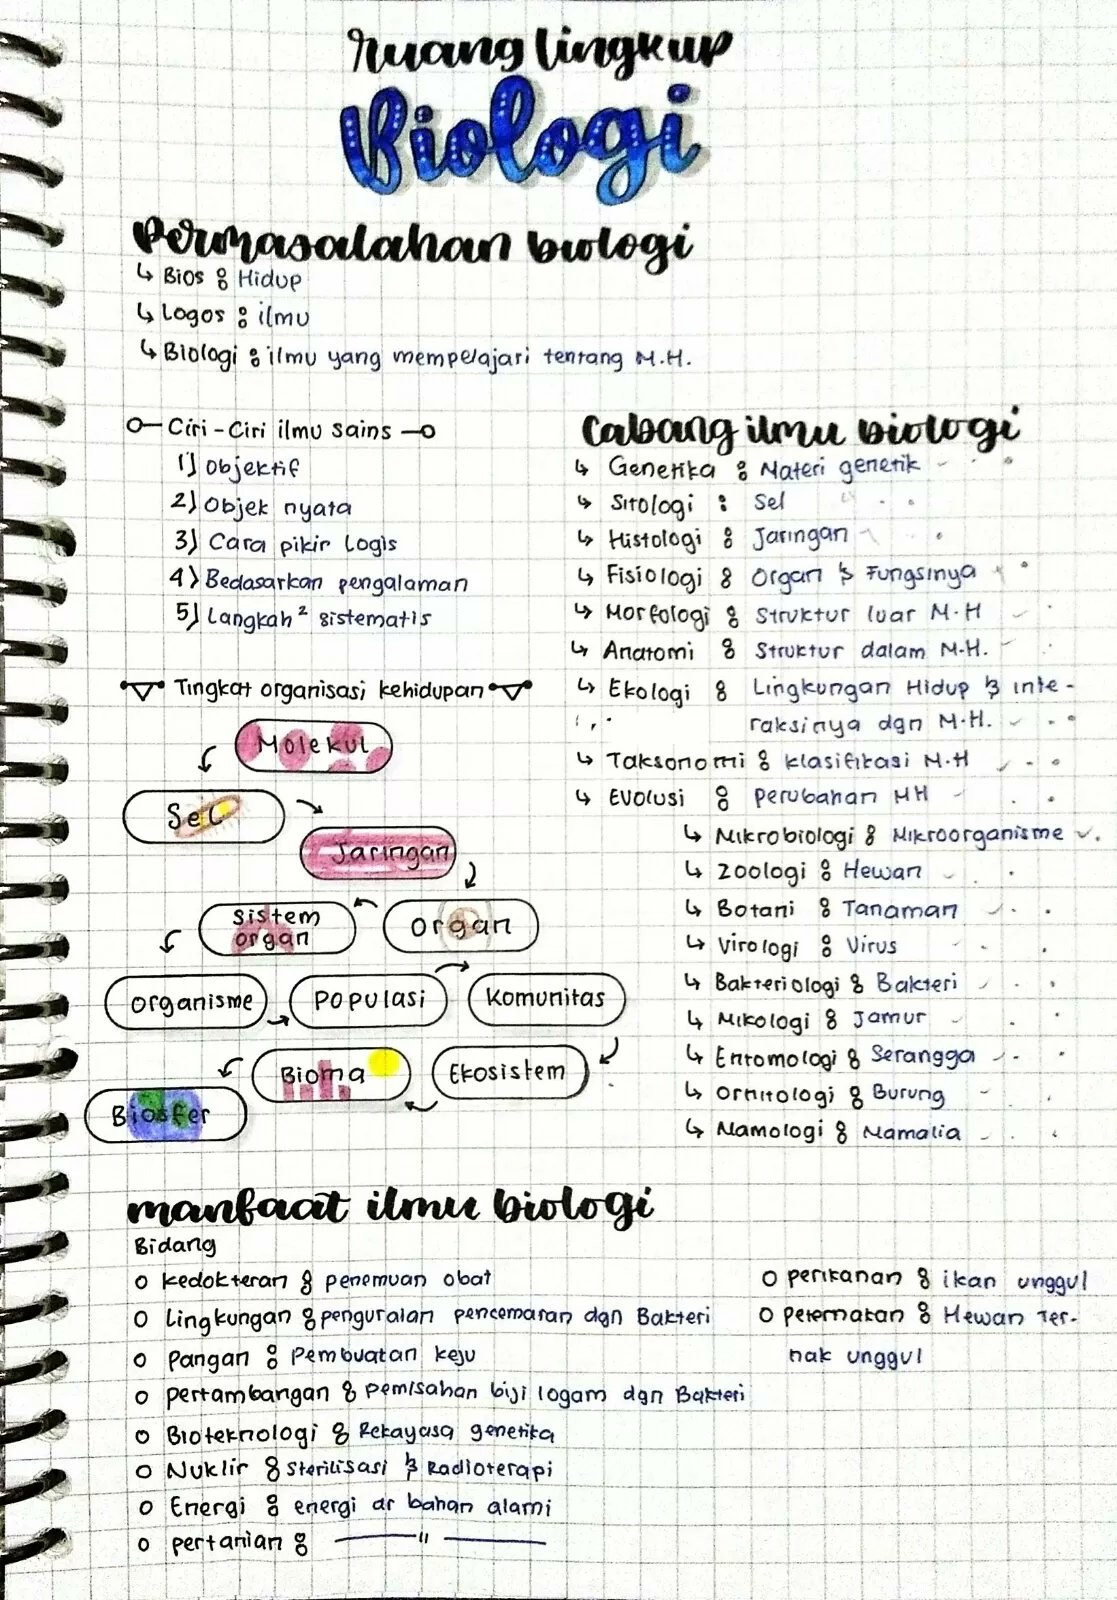 Ruang lingkup
Biologi
Permasalahan biologi
↳ Bios : Hidup
↳ Logos : ilmu
↳ Biologi : ilmu yang mempelajari tentang M.H.
Ciri-Ciri ilmu sains
1) Objektif
2) Objek nyata
3) Cara pikir Logis
4) Bedasarkan pengalaman
5) Langkah² sistematis
Tingkat organisasi kehidupan
Molekul
Sel
Jaringan
Organ
Sistem
organ
Organisme
Populasi
Komunitas
Ekosistem
Bioma
Biosfer
Cabang ilmu biologi
↳ Genetika : Materi genetik
↳ Sitologi : Sel
↳ Histologi : Jaringan
↳ Fisiologi : Organ & Fungsinya
↳ Morfologi : Struktur luar M.H
↳ Anatomi : Struktur dalam M.H.
↳ Ekologi : Lingkungan Hidup & inte-
raksinya dgn M.H.
↳ Taksonomi : klasifikasi M.H
↳ Evolusi : perubahan MH
↳ Mikrobiologi : Mikroorganisme
↳ Zoologi : Hewan
↳ Botani : Tanaman
↳ Virologi : Virus
↳ Bakteriologi : Bakteri
↳ Mikologi : Jamur
↳ Entomologi : Serangga
↳ Ornitologi : Burung
↳ Mamologi : Mamalia
manfaat ilmu biologi
Bidang
o kedokteran : penemuan obat
o Lingkungan : penguraian pencemaran dgn Bakteri
o Pangan : Pembuatan keju
o pertambangan : pemisahan biji logam dgn Bakteri
o Bioteknologi : Rekayasa genetika
o Nuklir : Sterilisasi & Radioterapi
o Energi : energi dr bahan alami
o pertanian : —— " ——
o perikanan : ikan unggul
o peternakan : Hewan Ter-
nak unggul